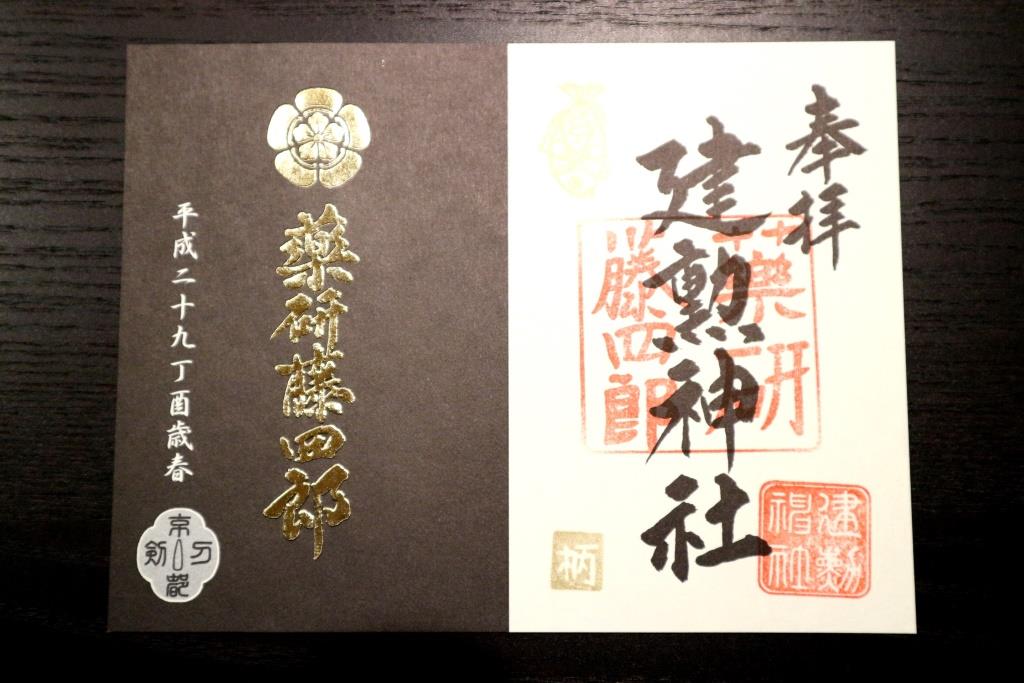 奉拝
建勲神社
薬研
藤四郎
建勲
神社
柄
薬研藤四郎
平成二十九丁酉歳春
京都
刀剣